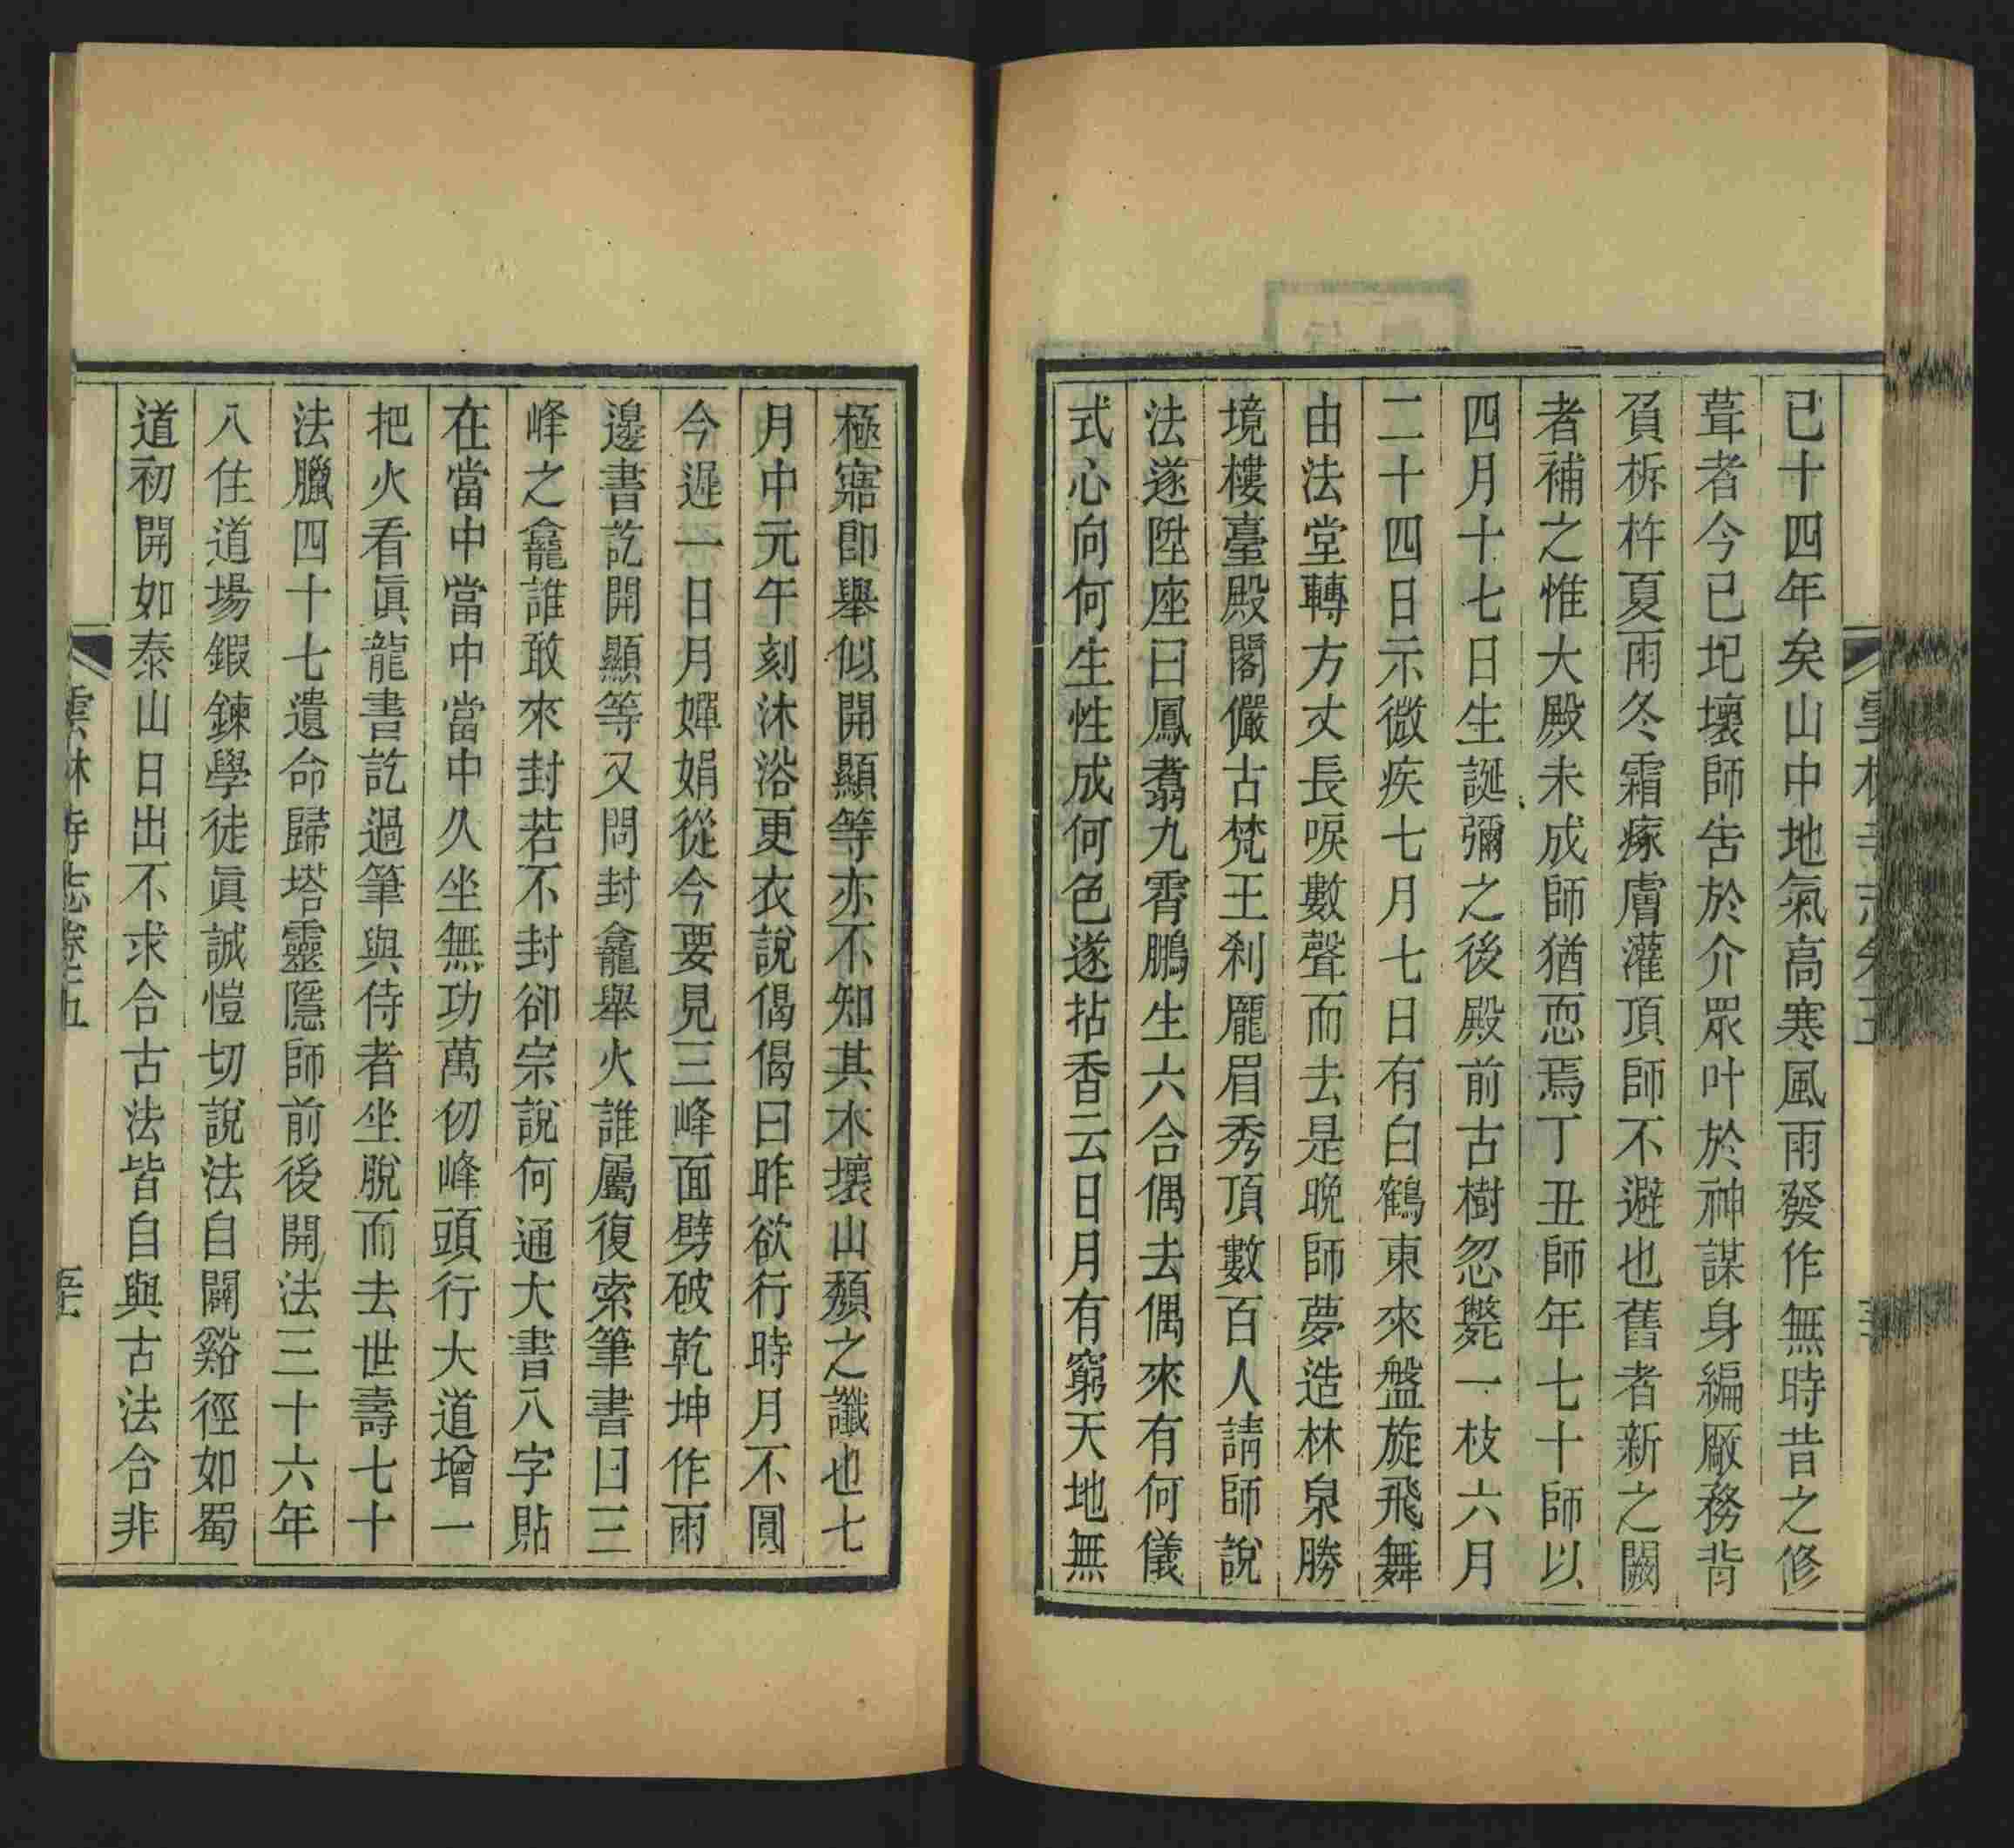 已十四年矣山中地氣高寒風雨發作無時昔之修
葺者今已圯壞師告於介眾叶於神謀身編廠務背
負柝杵夏雨冬霜瘃膚灌頂師不避也舊者新之闕
者補之惟大殿未成師猶恧焉丁丑師年七十師以
四月十七日生誕彌之後殿前古樹忽斃一枝六月
二十四日示微疾七月七日有白鶴東來盤旋飛舞
由法堂轉方丈長唳數聲而去是晚師夢造林泉勝
境樓臺殿閣儼古梵王剎龐眉秀頂數百人請師說
法遂陞座曰鳳翥九霄鵬生六合偶去偶來有何儀
式心向何生性成何色遂拈香云日月有窮天地無
極寤即舉似開顯等亦不知其木壞山頹之讖也七
月中元午刻沐浴更衣說偈偈曰昨欲行時月不圓
今遲一日月嬋娟從今要見三峰面劈破乾坤作兩
邊書訖開顯等又問封龕舉火誰屬復索筆書曰三
峰之龕誰敢來封若不封卻宗說何通大書八字貼
在當中當中當中久坐無功萬仞峰頭行大道增一
把火看眞龍書訖過筆與侍者坐脫而去世壽七十
法臘四十七遺命歸塔靈隱師前後開法三十六年
八住道場鍛鍊學徒眞誠愷切說法自闢谿徑如蜀
道初開如泰山日出不求合古法皆自與古法合非
雲林寺志卷五